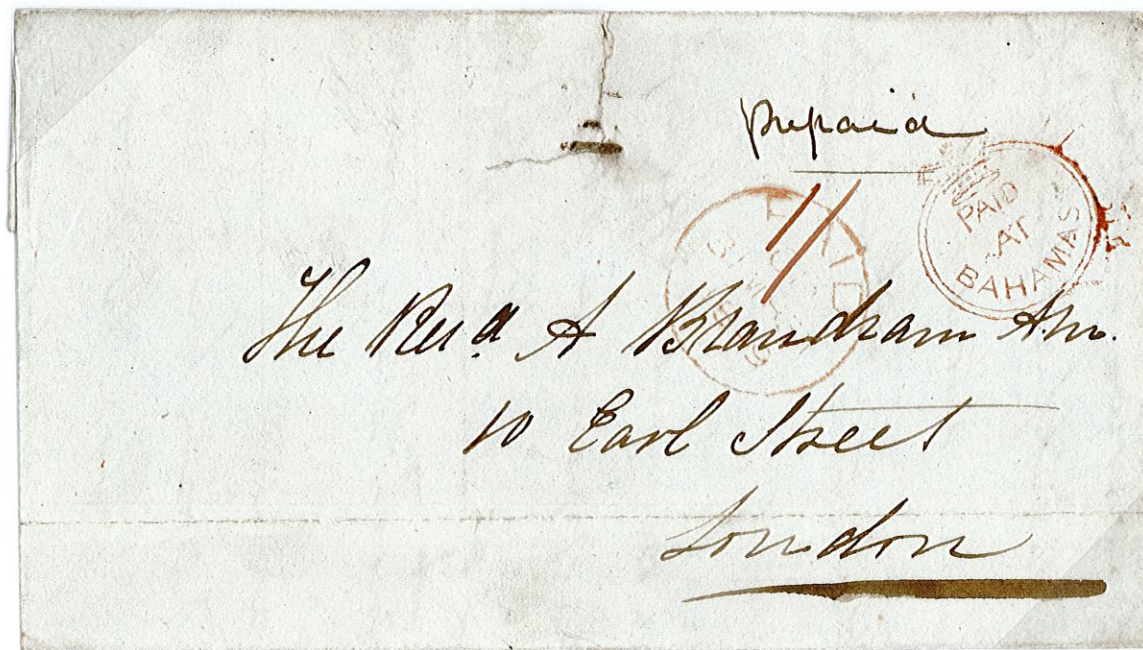 Prepaid
1/
PAID
AT
BAHAMAS
PAID
The Revd. A Brandram AM.
10 Earl Street
London